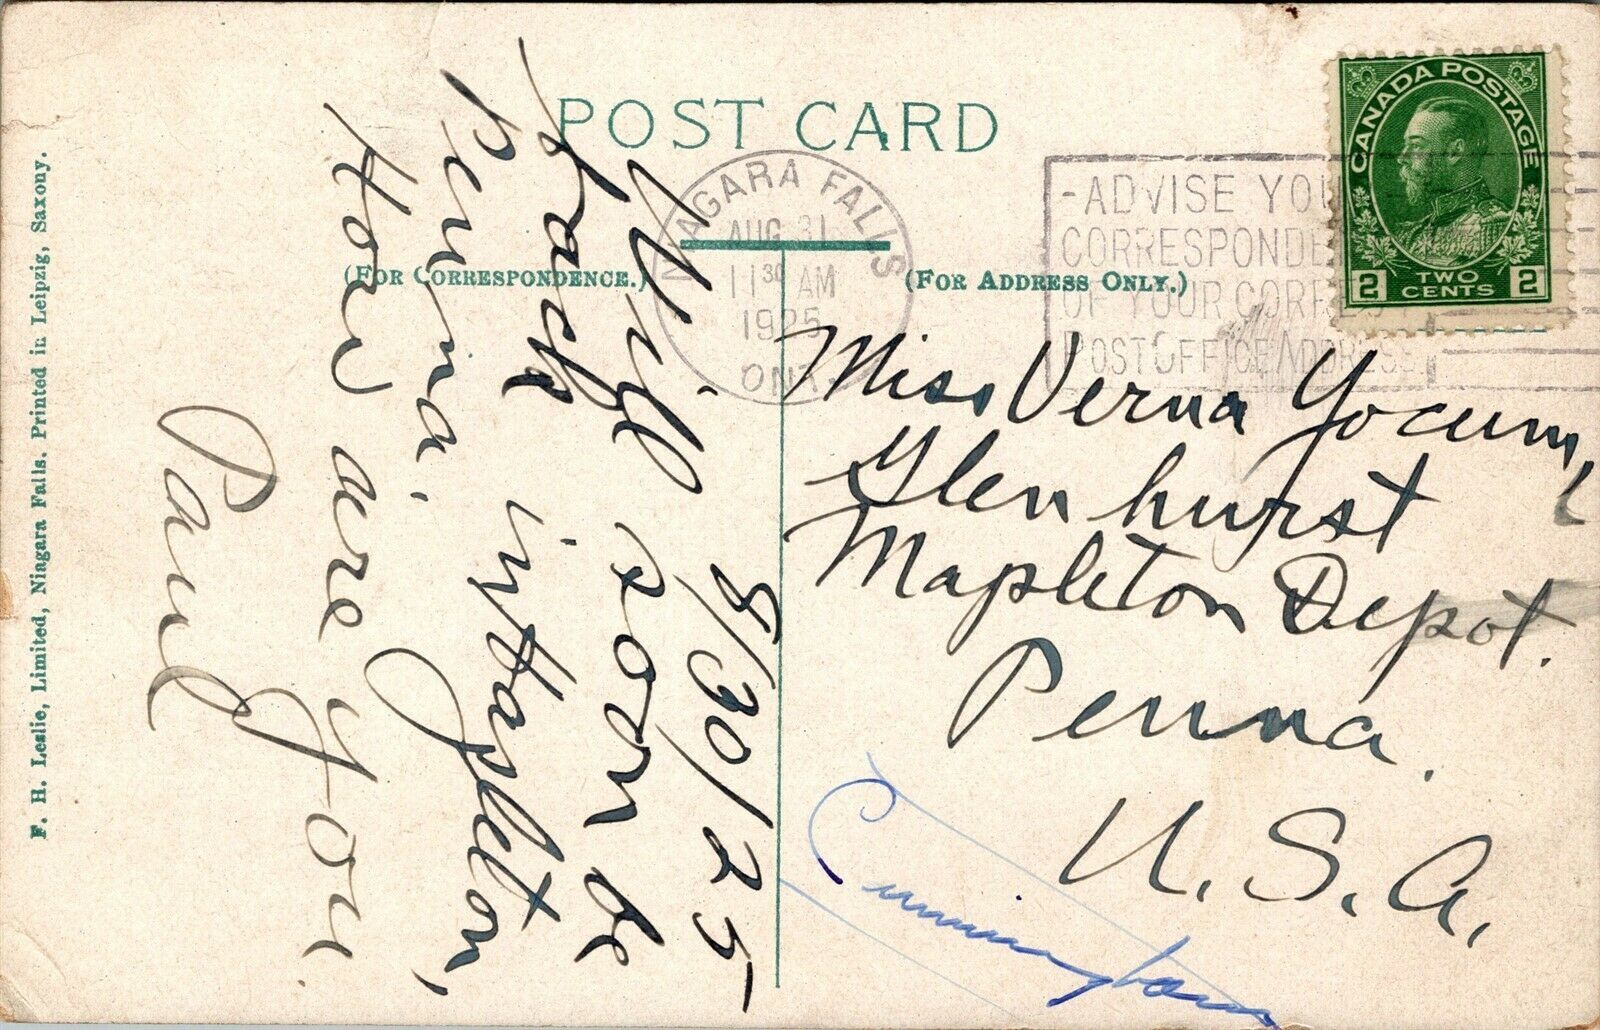 POST CARD
(FOR CORRESPONDENCE.)
(FOR ADDRESS ONLY.)
NIAGARA FALLS
AUG 31
11 30 AM
1925
ONT
-ADVISE YOU
CORRESPONDE
OF YOUR CORRECT
POST OFFICE ADDRESS
CANADA POSTAGE
2 TWO CENTS 2
8/30/25
Will soon be
back in Hazleton,
Penna.
How are you
Paul
Miss Verna Yocum,
Glenhurst
Mapleton Depot.
Penna.
U. S. A.
Cunningham
F. H. Leslie, Limited, Niagara Falls. Printed in Leipzig, Saxony.